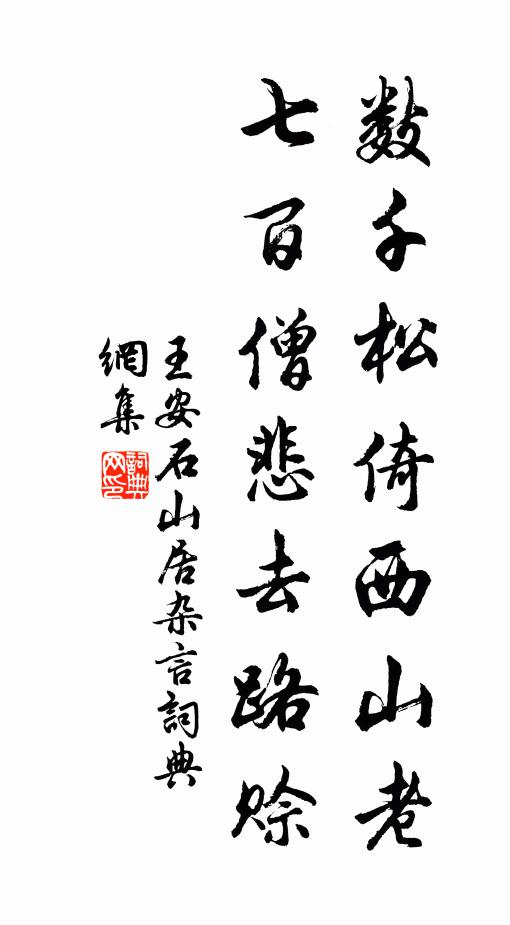 数千松倚西山老
七百僧悲去路赊
王安石山居杂言詞典
網集
詞典網印